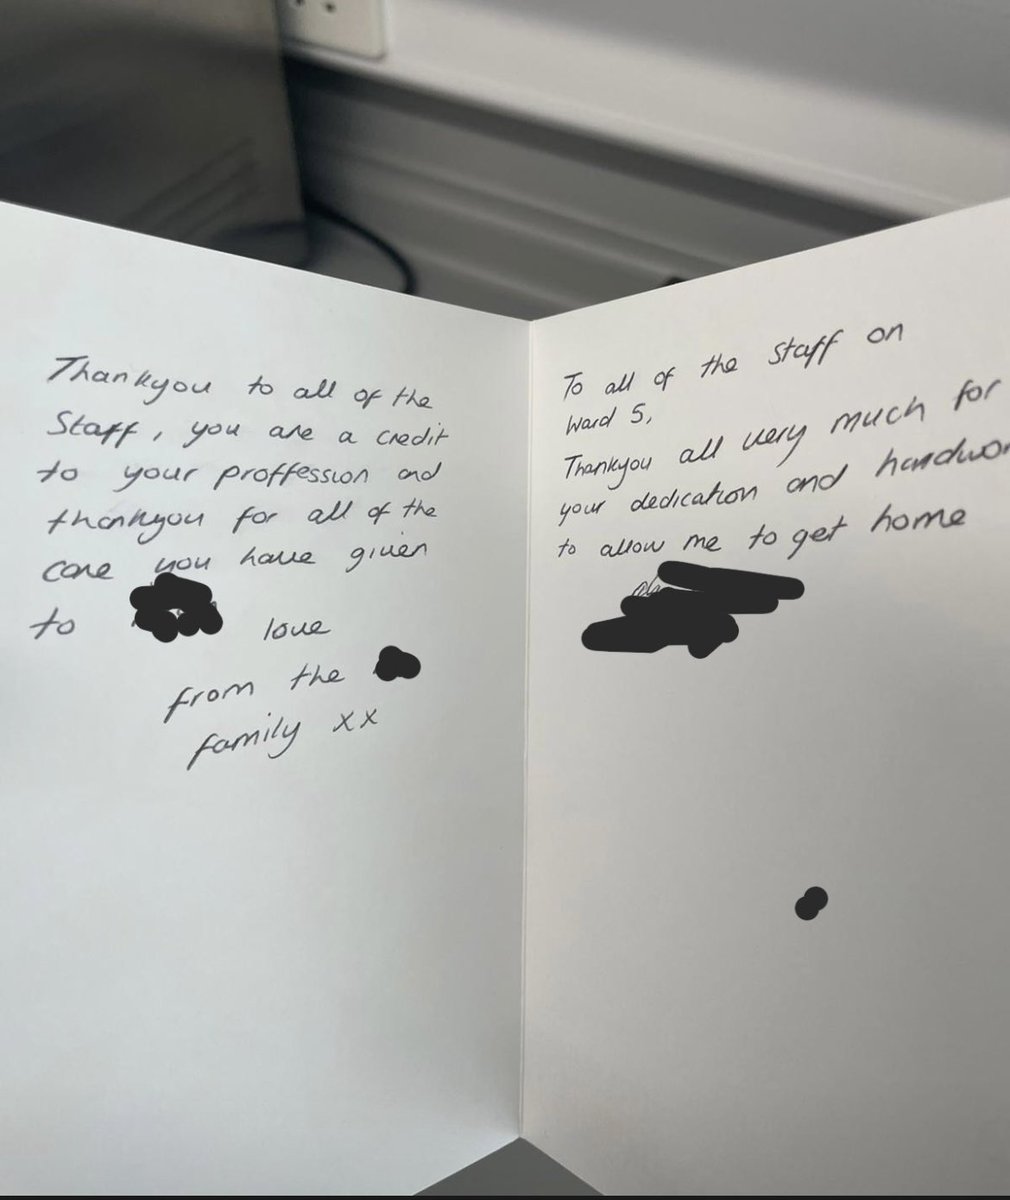 Thankyou to all of the
Staff, you are a credit
to your proffession and
thankyou for all of the
care you have given
to
love
from the
family xx
To all of the staff on
Ward 5,
Thankyou all very much for
your dedication and hardwor
to allow me to get home